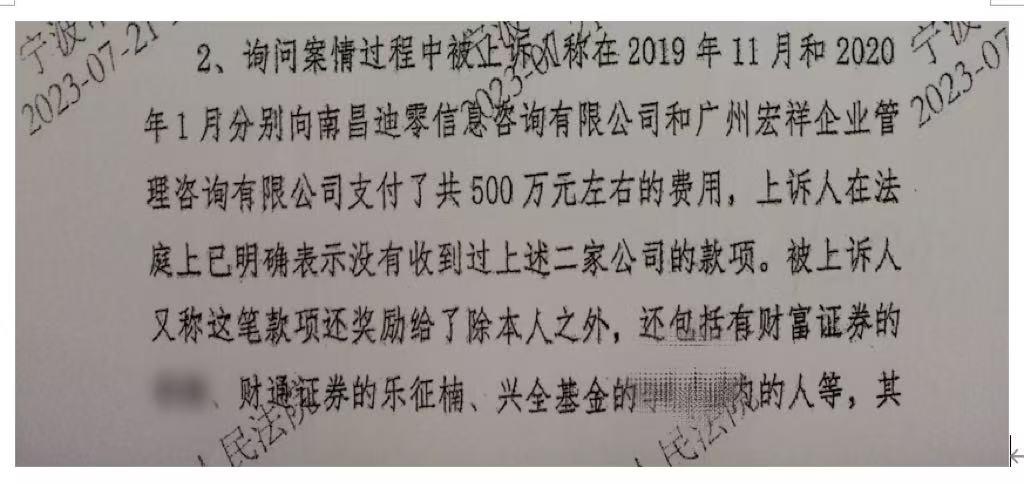 宁波
2023-07-21
2023-07
宁波
2023-07
2、询问案情过程中被上诉人称在2019年11月和2020
年1月分别向南昌迪零信息咨询有限公司和广州宏祥企业管
理咨询有限公司支付了共500万元左右的费用，上诉人在法
庭上已明确表示没有收到过上述二家公司的款项。被上诉人
又称这笔款项还奖励给了除本人之外，还包括有财富证券的
、财通证券的乐征楠、兴全基金的 内的人等，其
人民法院
人民法院